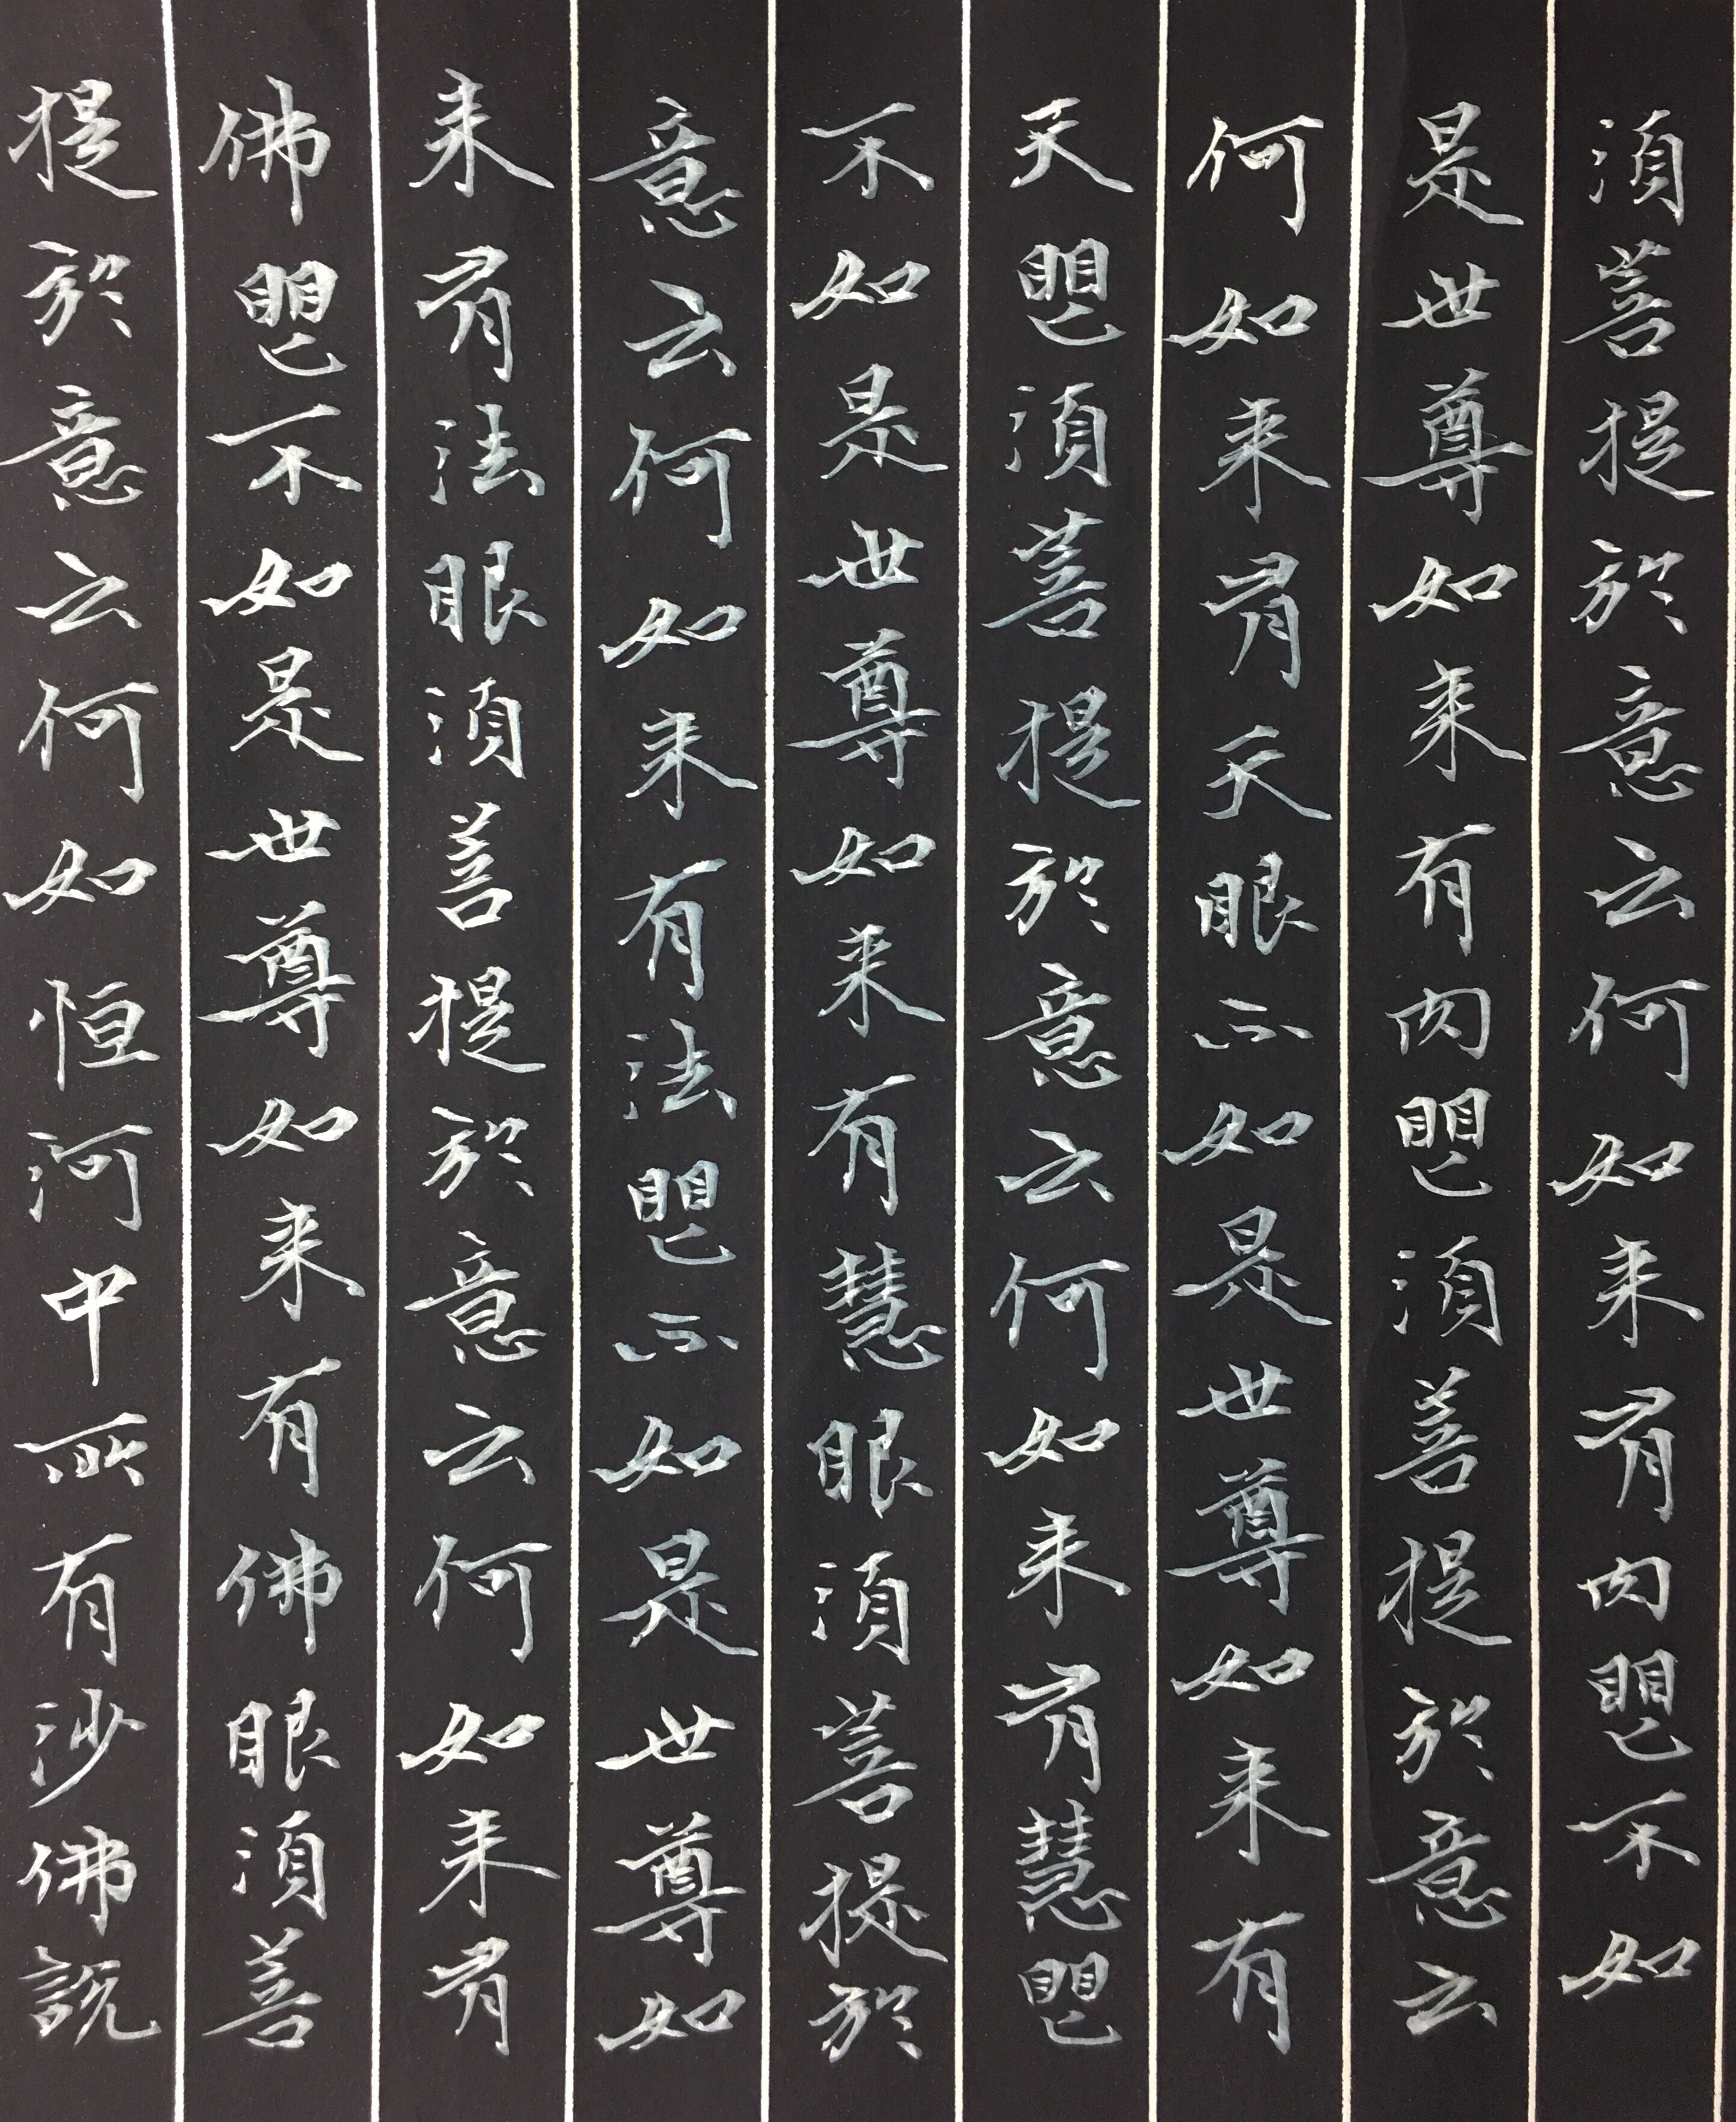 須菩提於意云何如来有肉眼不如
是世尊如来有肉眼須菩提於意云
何如来有天眼不如是世尊如来有
天眼須菩提於意云何如来有慧眼
不如是世尊如来有慧眼須菩提於
意云何如来有法眼不如是世尊如
来有法眼須菩提於意云何如来有
佛眼不如是世尊如来有佛眼須菩
提於意云何如恒河中所有沙佛說